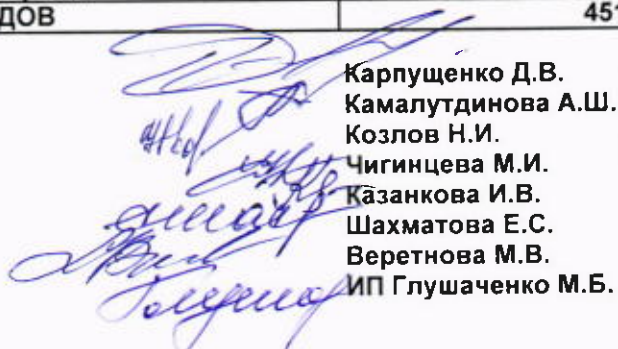 ДОВ 451
Карпущенко Д.В.
Камалутдинова А.Ш.
Козлов Н.И.
Чигинцева М.И.
Казанкова И.В.
Шахматова Е.С.
Веретнова М.В.
ИП Глушаченко М.Б.